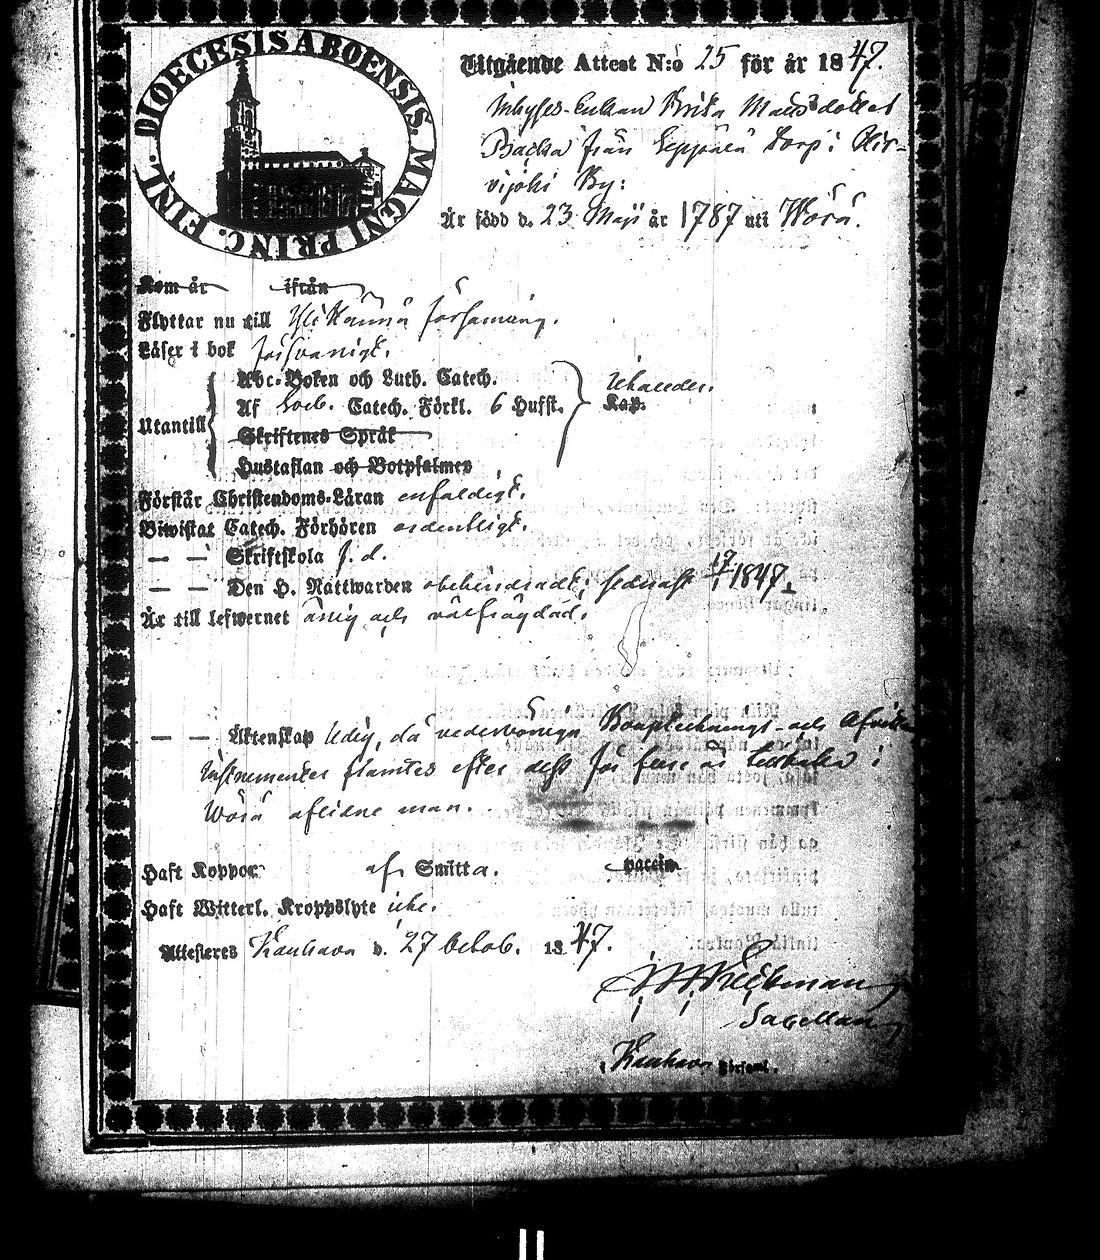 DIOECESIS ABOENSIS. MAGNI PRINC. FINL.
Utgående Attest N:o 25 för år 1847.
Inhyses-Enkan Brita Matsdotter
Backa från Seppälä torp i Kir-
vijoki By:
Är född d. 23 Maji år 1787 uti Wörå.
Kom år ifrån
Flyttar nu till församling.
Läser i bok försvarligt.
Abc-Boken och Luth. Catech.
Utantill Af Sveb. Catech. Förkl. 6 Hufst. utandes. Kap.
Skriftenes Språk
Hustaflan och Botpsalmer
Förstår Christendoms-Läran enfaldigt.
Biwistat Catech. Förhören ordentligt.
— — Skriftskola f. d.
— — Den H. Nattwarden obehindradt, sednast 1847.
Är till lefwernet ärlig och välfrägdad.
— — Äktenskap ledig, då vederbörliga och
Instrumenter efter dess för år i
Wörå aflidne man.
Haft Koppor af Smitta. vaccin.
Haft Witterl. Kroppslyte icke.
Attesteras Kauhava d. 27 Octob. 1847.
Sacellan
Kauhava Förfaml.